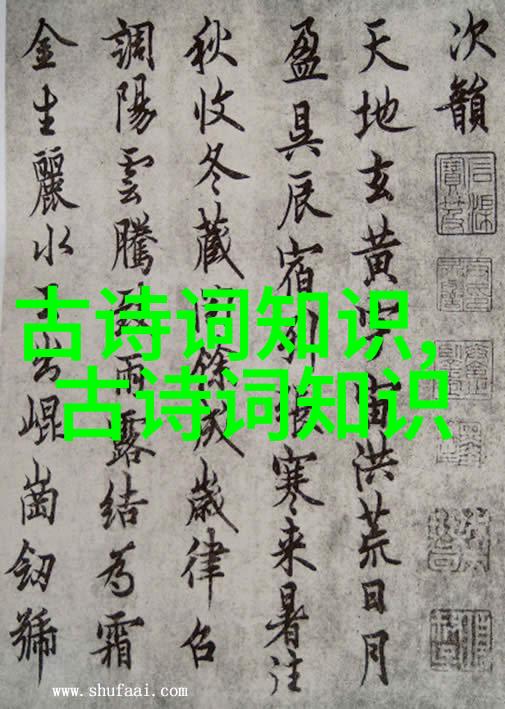 次韻
天地玄黄宙洪荒日月
盈昃辰宿列寒来暑往
秋收冬藏餘成歲律召
調陽雲騰雨露結為霜
金生麗水出崐崗劒號
古诗词知识,
古诗词知识
www.shufaai.com